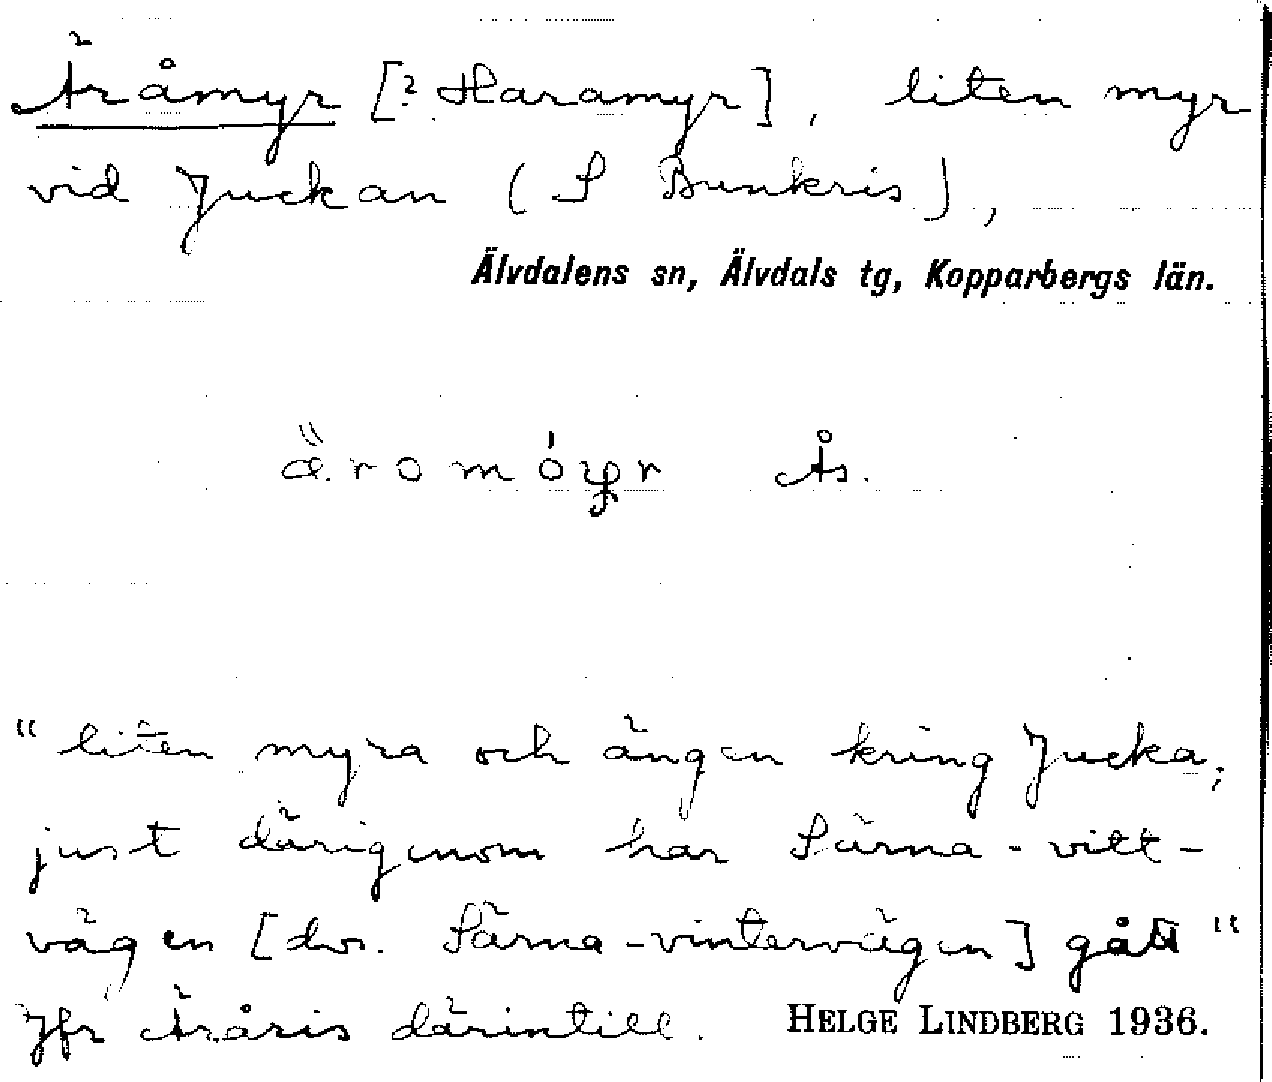 Äråmyr [? Haramyr], liten myr
vid Juckan (S Bunkris),
Älvdalens sn, Älvdals tg, Kopparbergs län.
Ås.
“ liten myra och ängen kring Jucka,
just därigenom har Särna-vitt-
vägen [dvs. Särna-vintervägen] gått “
Jfr Äråris därintill. HELGE LINDBERG 1936.